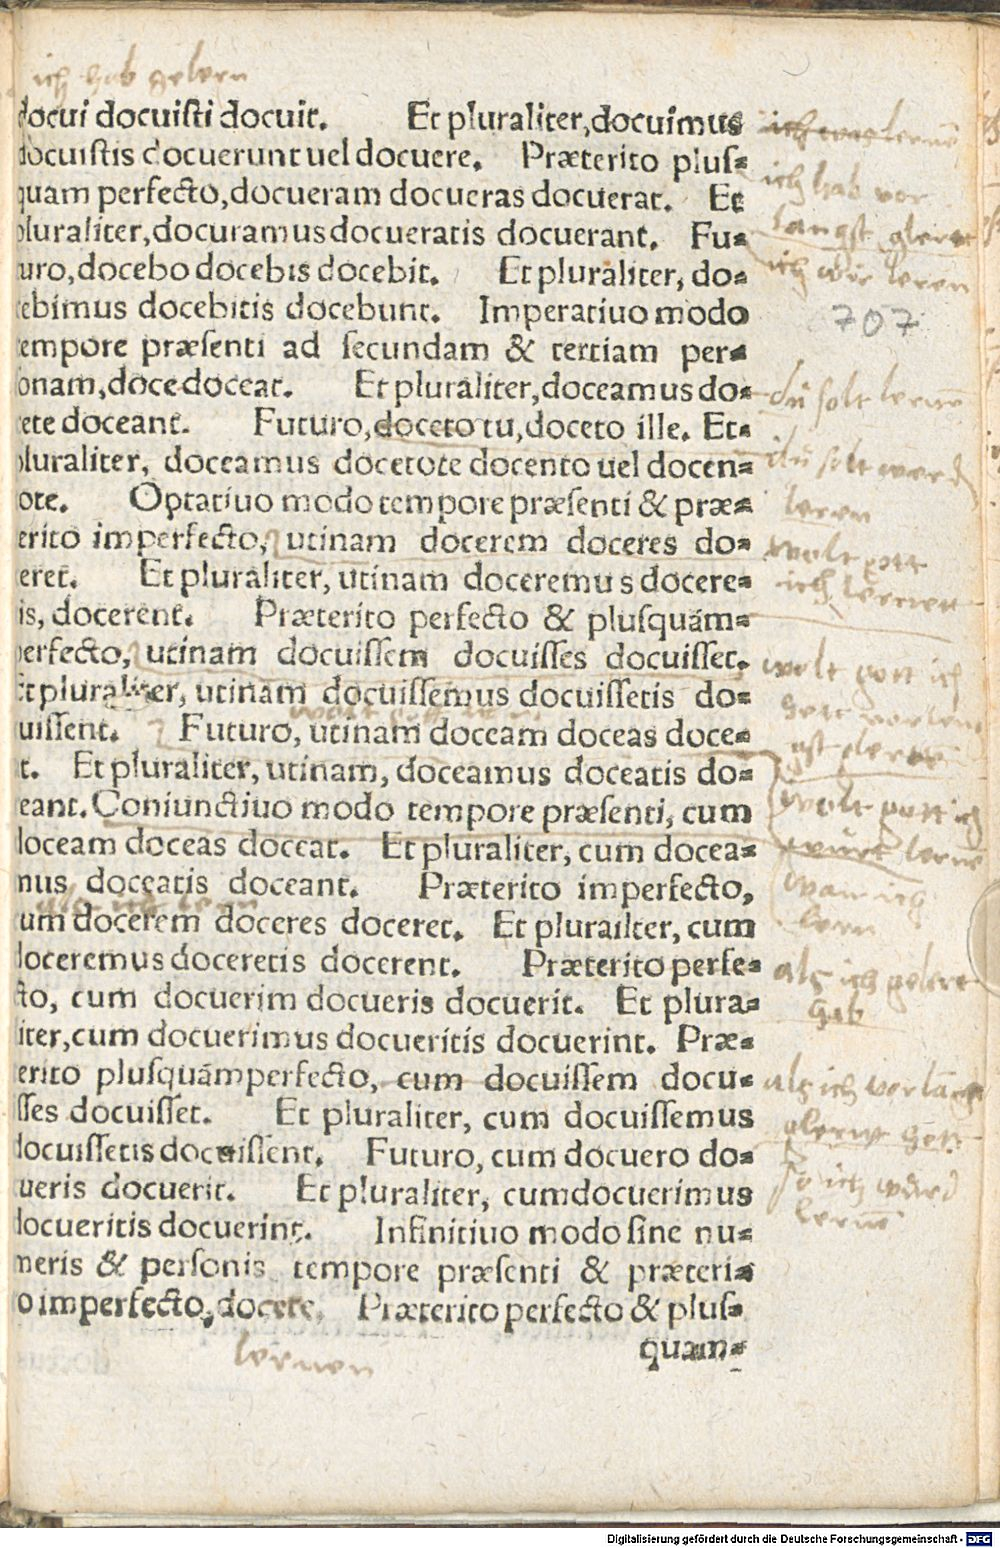 ich hab gelern
docui docuisti docuit. Et pluraliter, docuimus
docuistis docuerunt uel docuere. Præterito plus⸗
quam perfecto, docueram docueras docuerat. Et
pluraliter, docuramus docueratis docuerant. Fu⸗
turo, docebo docebis docebit. Et pluraliter, do⸗
cebimus docebitis docebunt. Imperatiuo modo
tempore præsenti ad secundam & tertiam per⸗
sonam, doce doceat. Et pluraliter, doceamus do⸗
cete doceant. Futuro, doceto tu, doceto ille. Et⸗
pluraliter, doceamus docetote docento uel docen⸗
tote. Optatiuo modo tempore præsenti & præ⸗
terito imperfecto, utinam docerem doceres do⸗
ceret. Et pluraliter, utinam doceremus docere⸗
tis, docerent. Præterito perfecto & plusquãm⸗
perfecto, utinam docuissem docuisses docuisset.
Et pluraliter, utinam docuissemus docuissetis do⸗
cuissent. Futuro, utinam doceam doceas doce⸗
at. Et pluraliter, utinam, doceamus doceatis do⸗
ceant. Coniunctiuo modo tempore præsenti, cum
doceam doceas doceat. Et pluraliter, cum docea⸗
mus doceatis doceant. Præterito imperfecto,
cum docerem doceres doceret. Et plurailter, cum
doceremus doceretis docerent. Præterito perfe⸗
cto, cum docuerim docueris docuerit. Et plura⸗
liter, cum docuerimus docueritis docuerint. Præ⸗
terito plusquãmperfecto, cum docuissem docu⸗
isses docuisset. Et pluraliter, cum docuissemus
docuissetis docuissent. Futuro, cum docuero do⸗
cueris docuerit. Et pluraliter, cum docuerimus
docueritis docuerint. Infinitiuo modo sine nu⸗
meris & personis tempore præsenti & præteri⸗
to imperfecto, docere, Præterito perfecto & plus⸗
quam⸗
lernen
ich hab vor
langst glernt
ich wir leren
707
du solt lernē
du solt werdē
leren
wolt gott
ich lernett
wolt gott ich
hett vorlen
gst glernt
wolt gott ich
wurt lernē
wan ich
lern
als ich gelert
hab
als ich vorlãngst
glernt hett
so ich würd
lernē
Digitalisierung gefördert durch die Deutsche Forschungsgemeinschaft - DFG